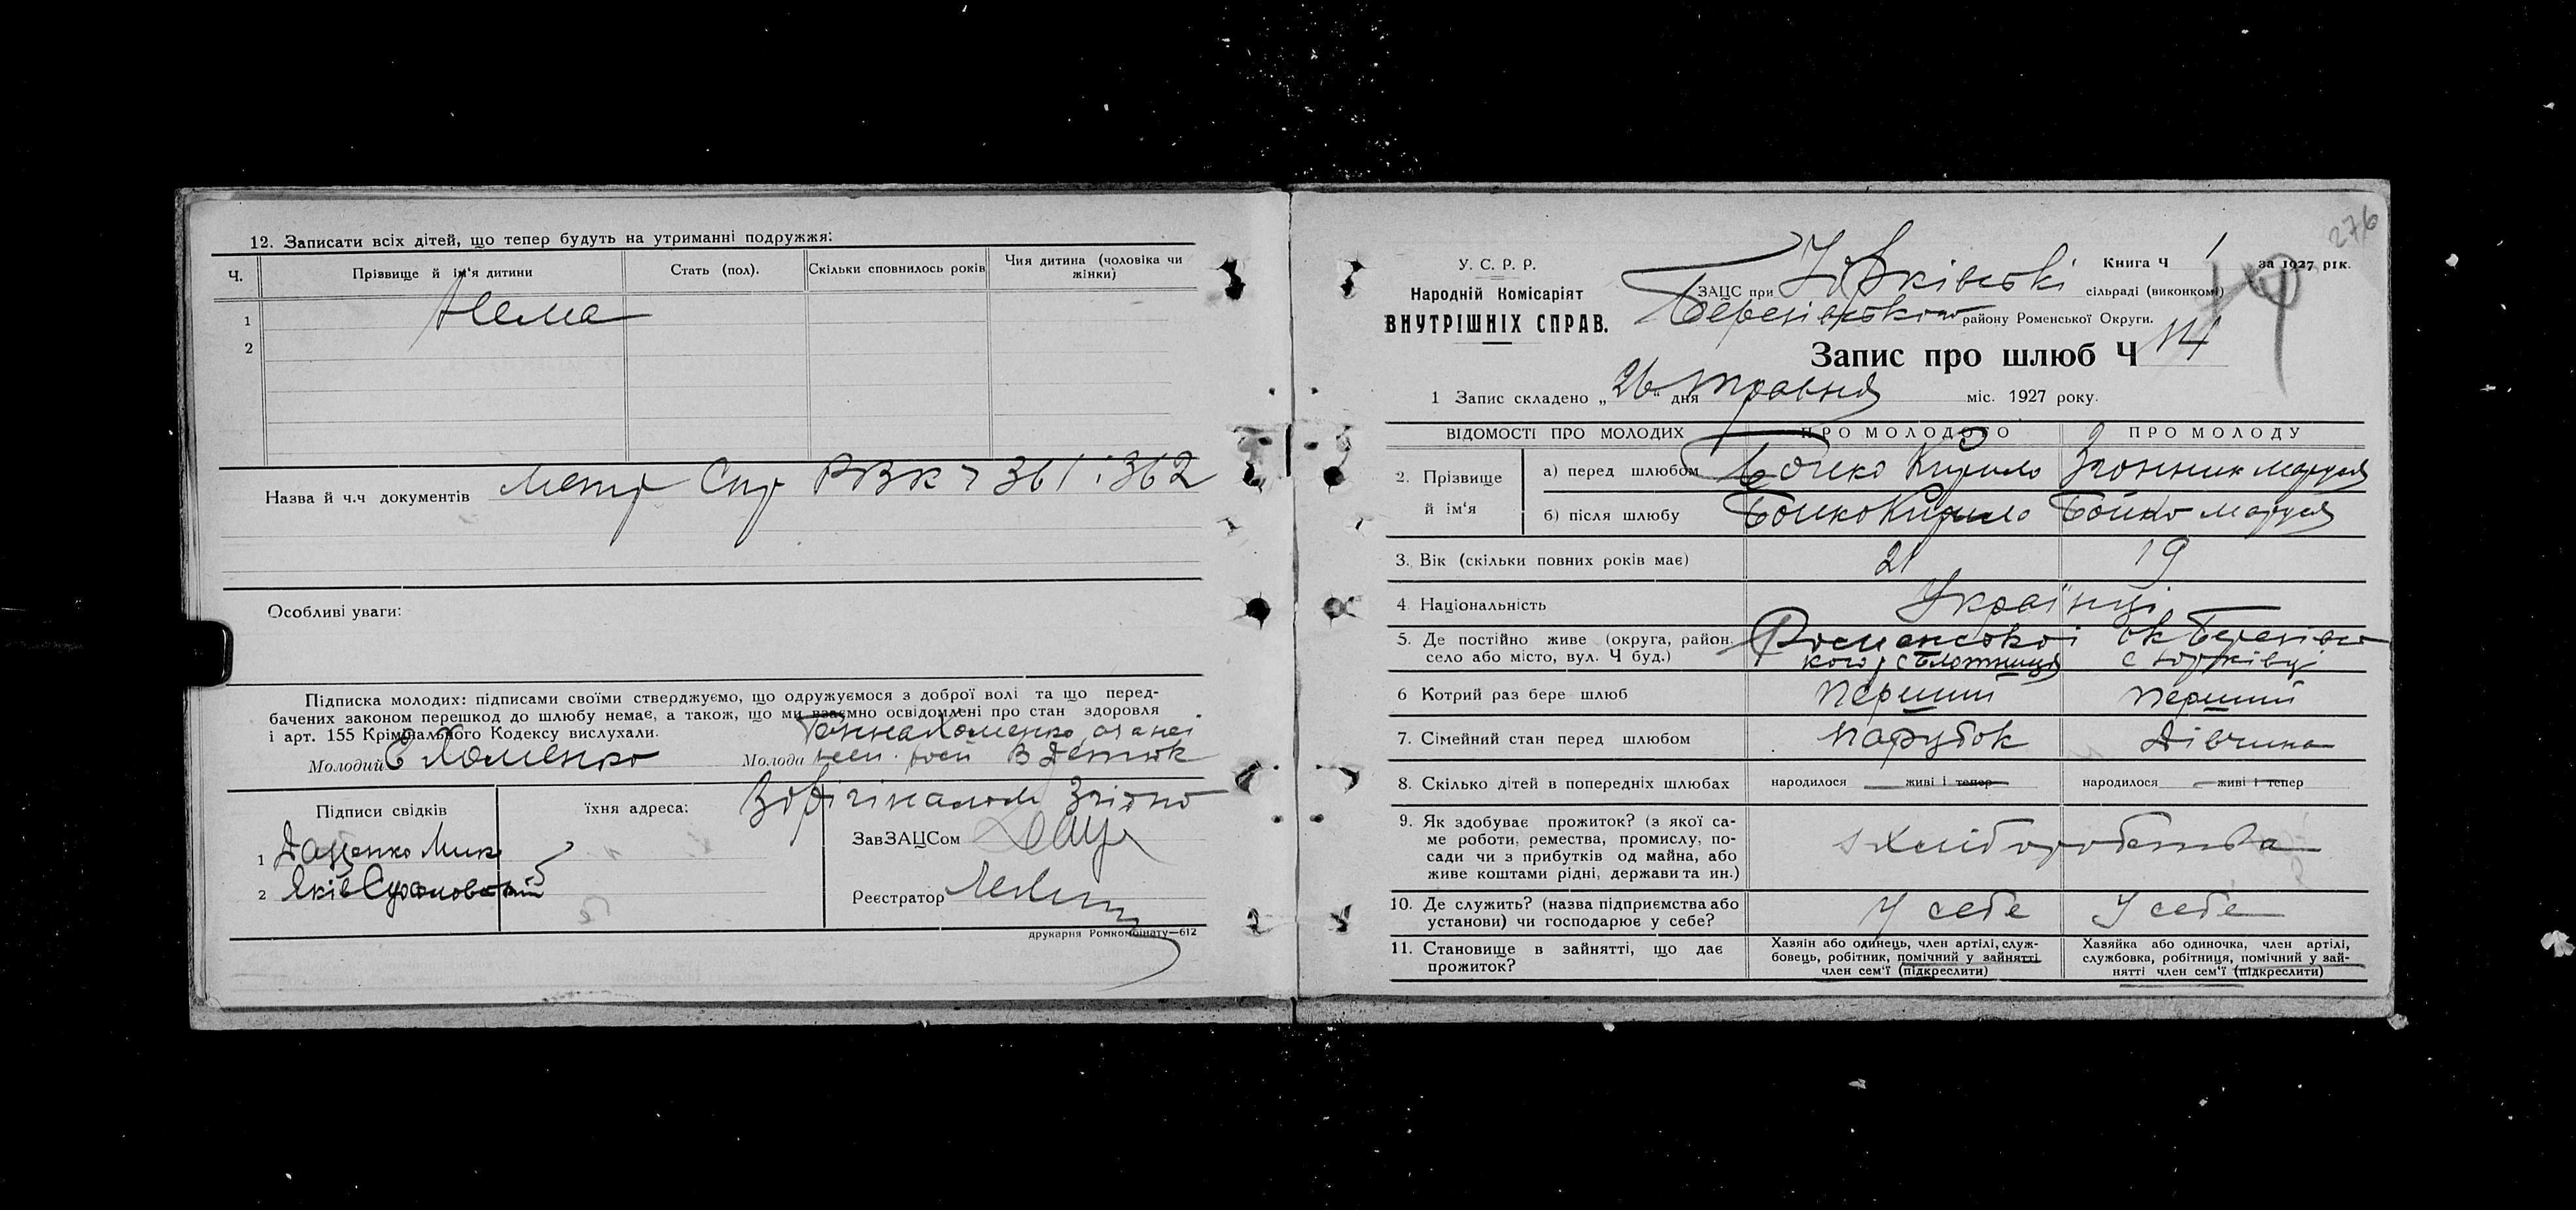 12. Записати всіх дітей, що тепер будуть на утриманні подружжя:
Ч. Прізвище й ім'я дитини Стать (пол). Скільки сповнилось років Чия дитина (чоловіка чи жінки)
1 Нема
2
Назва й ч.ч документів Метр Спр РВК ч 361 і 362
Особливі уваги:
Підписка молодих: підписами своїми стверджуємо, що одружуємося з доброї волі та що перед-
бачених законом перешкод до шлюбу немає, а також, що ми взаємно освідомлені про стан здоровля
і арт. 155 Крімінального Кодексу вислухали.
Ганна Хоменко, а за неї
Молодий Є Хоменко Молода
З оргіналом Згідно
Підписи свідків їхня адреса:
ЗавЗАЦСом
1 Даценко Мик
2 Яків
Реєстратор
друкарня Ромкомбінату—612
276
У. С. Р. Р.
Народній Комісаріят
ВНУТРІШНІХ СПРАВ.
ЗАЦС при Юрківські сільраді (виконкомі) Книга Ч 1 за 1927 рік.
Березівського району Роменської Округи.
Запис про шлюб Ч 14
1 Запис складено „26" дня травня міс. 1927 року.
ВІДОМОСТІ ПРО МОЛОДИХ ПРО МОЛОДОГО ПРО МОЛОДУ
2. Прізвище й ім'я
а) перед шлюбом Бойко Кирило Згонник Маруся
б) після шлюбу Бойко Кирило Бойко Маруся
3. Вік (скільки повних років має) 21 19
4 Національність Українці
5. Де постійно живе (округа, район. Роменської ок Березівсь
село або місто, вул. Ч буд.) кого р с Блотниця с Юрківці
6 Котрий раз бере шлюб перший перший
7. Сімейний стан перед шлюбом парубок дівчина
8. Скілько дітей в попередніх шлюбах народилося — живі і тепер народилося — живі і тепер
9. Як здобуває прожиток? (з якої са-
ме роботи, ремества, промислу, по-
сади чи з прибутків од майна, або
живе коштами рідні, держави та ин.) з хліборобства
10. Де служить? (назва підприємства або
установи) чи господарює у себе? У себе У себе
11. Становище в зайнятті, що дає
прожиток?
Хазяін або одинець, член артілі, служ-
бовець, робітник, помічний у зайнятті
член сем'ї (підкреслити)
Хазяйка або одиночка, член артілі,
службовка, робітниця, помічний у зай-
нятті член сем'ї (підкреслити)